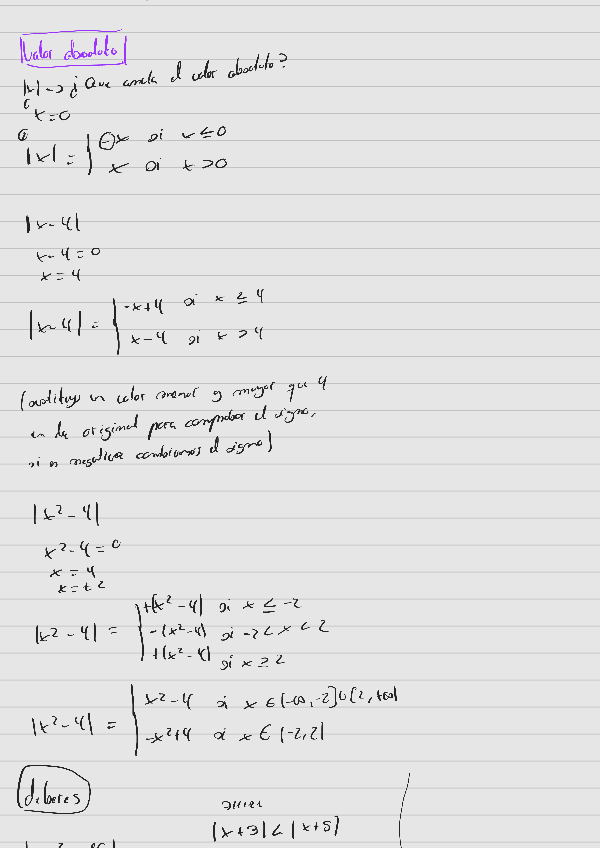 Valor absoluto
|x| -> ¿Que anula el valor absoluto?
x=0
|x| = { -x si x ≤ 0
x si x > 0
|x-4|
x-4=0
x=4
|x-4| = { -x+4 si x ≤ 4
x-4 si x > 4
(sustituyo un valor menor y mayor que 4
en la original para comprobar el signo,
si es negativa cambiamos el signo)
|x²-4|
x²-4=0
x=4
x=±2
|x²-4| = { +(x²-4) si x ≤ -2
-(x²-4) si -2<x<2
+(x²-4) si x ≥ 2
|x²-4| = { x²-4 si x ∈ (-∞,-2]∪[2,+∞)
-x²+4 si x ∈ (-2,2)
deberes
|x+3|<|x+5|